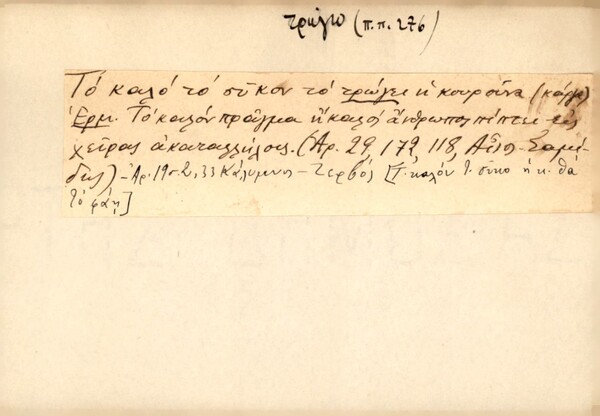 τρώγω (π.π. 276)
Τό καλό τό σῦκον τό τρώγει ἡ κουρούνα (κάργα)
Ἑρμ. Τό καλόν πρᾶγμα ἤ καλός ἄνθρωπος πίπτει εἰς
χεῖρας ἀκαταλλήλους. (Ἀρ. 29, 179, 118, Αἶνος - Σαμί-
δης) - Ἀρ. 1952, 33 Κάλυμνος - Ζερβός [Τ. καλόν τ. σῦκο ἡ κ. θά
τό φάῃ]